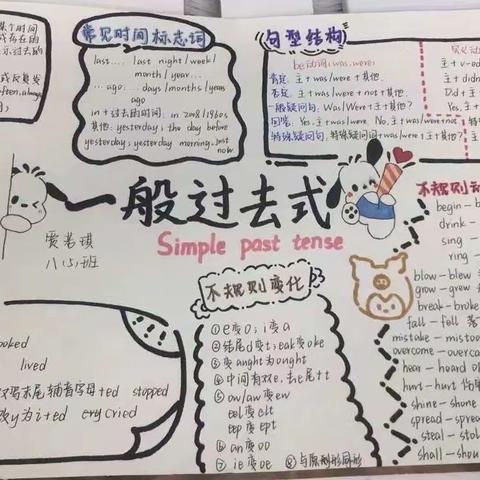 某个时间
或存在的
示过去的
常见时间标志词
last.... last night/week/
month/year...
...ago.... days/months/years
ago
in+过去的时间: in 2008/1980s
其他: yesterday; the day before
yesterday; yesterday morning, just
now
句型结构
be动词(was, were)
肯定. 主+was/were+其他.
否定. 主+was/were+not+其他.
一般疑问句. Was/Were+主+其他?
回答. Yes, 主+was/were. No, 主+was/were+not
特殊疑问句. 特殊疑问词+was/were+主+其他?
主+v-ed
主+didn
Did+主
Yes, 主
一般过去式
Simple past tense
八(5)班
ooked
lived
双写末尾辅音字母+ed stopped
改y为i+ed cry cried
不规则变化
①e变o; i变a
②结尾d变t; eak变oke
③变aught为ought
④中间有双e, 去e尾+t
⑤ow/aw变ew
eel变elt
eep变ept
⑥an变oo
⑦ie变oe ⑧与原形形同形
不规则动
begin-b
drink-
sing-
ring-
blow-blew
grow-grew
break-broke
fall-fell 落
mistake-mistoo
overcome-overca
hear-heard
hurt-hurt 伤
shine-shone
spread-spre
steal-stol
shall-shou